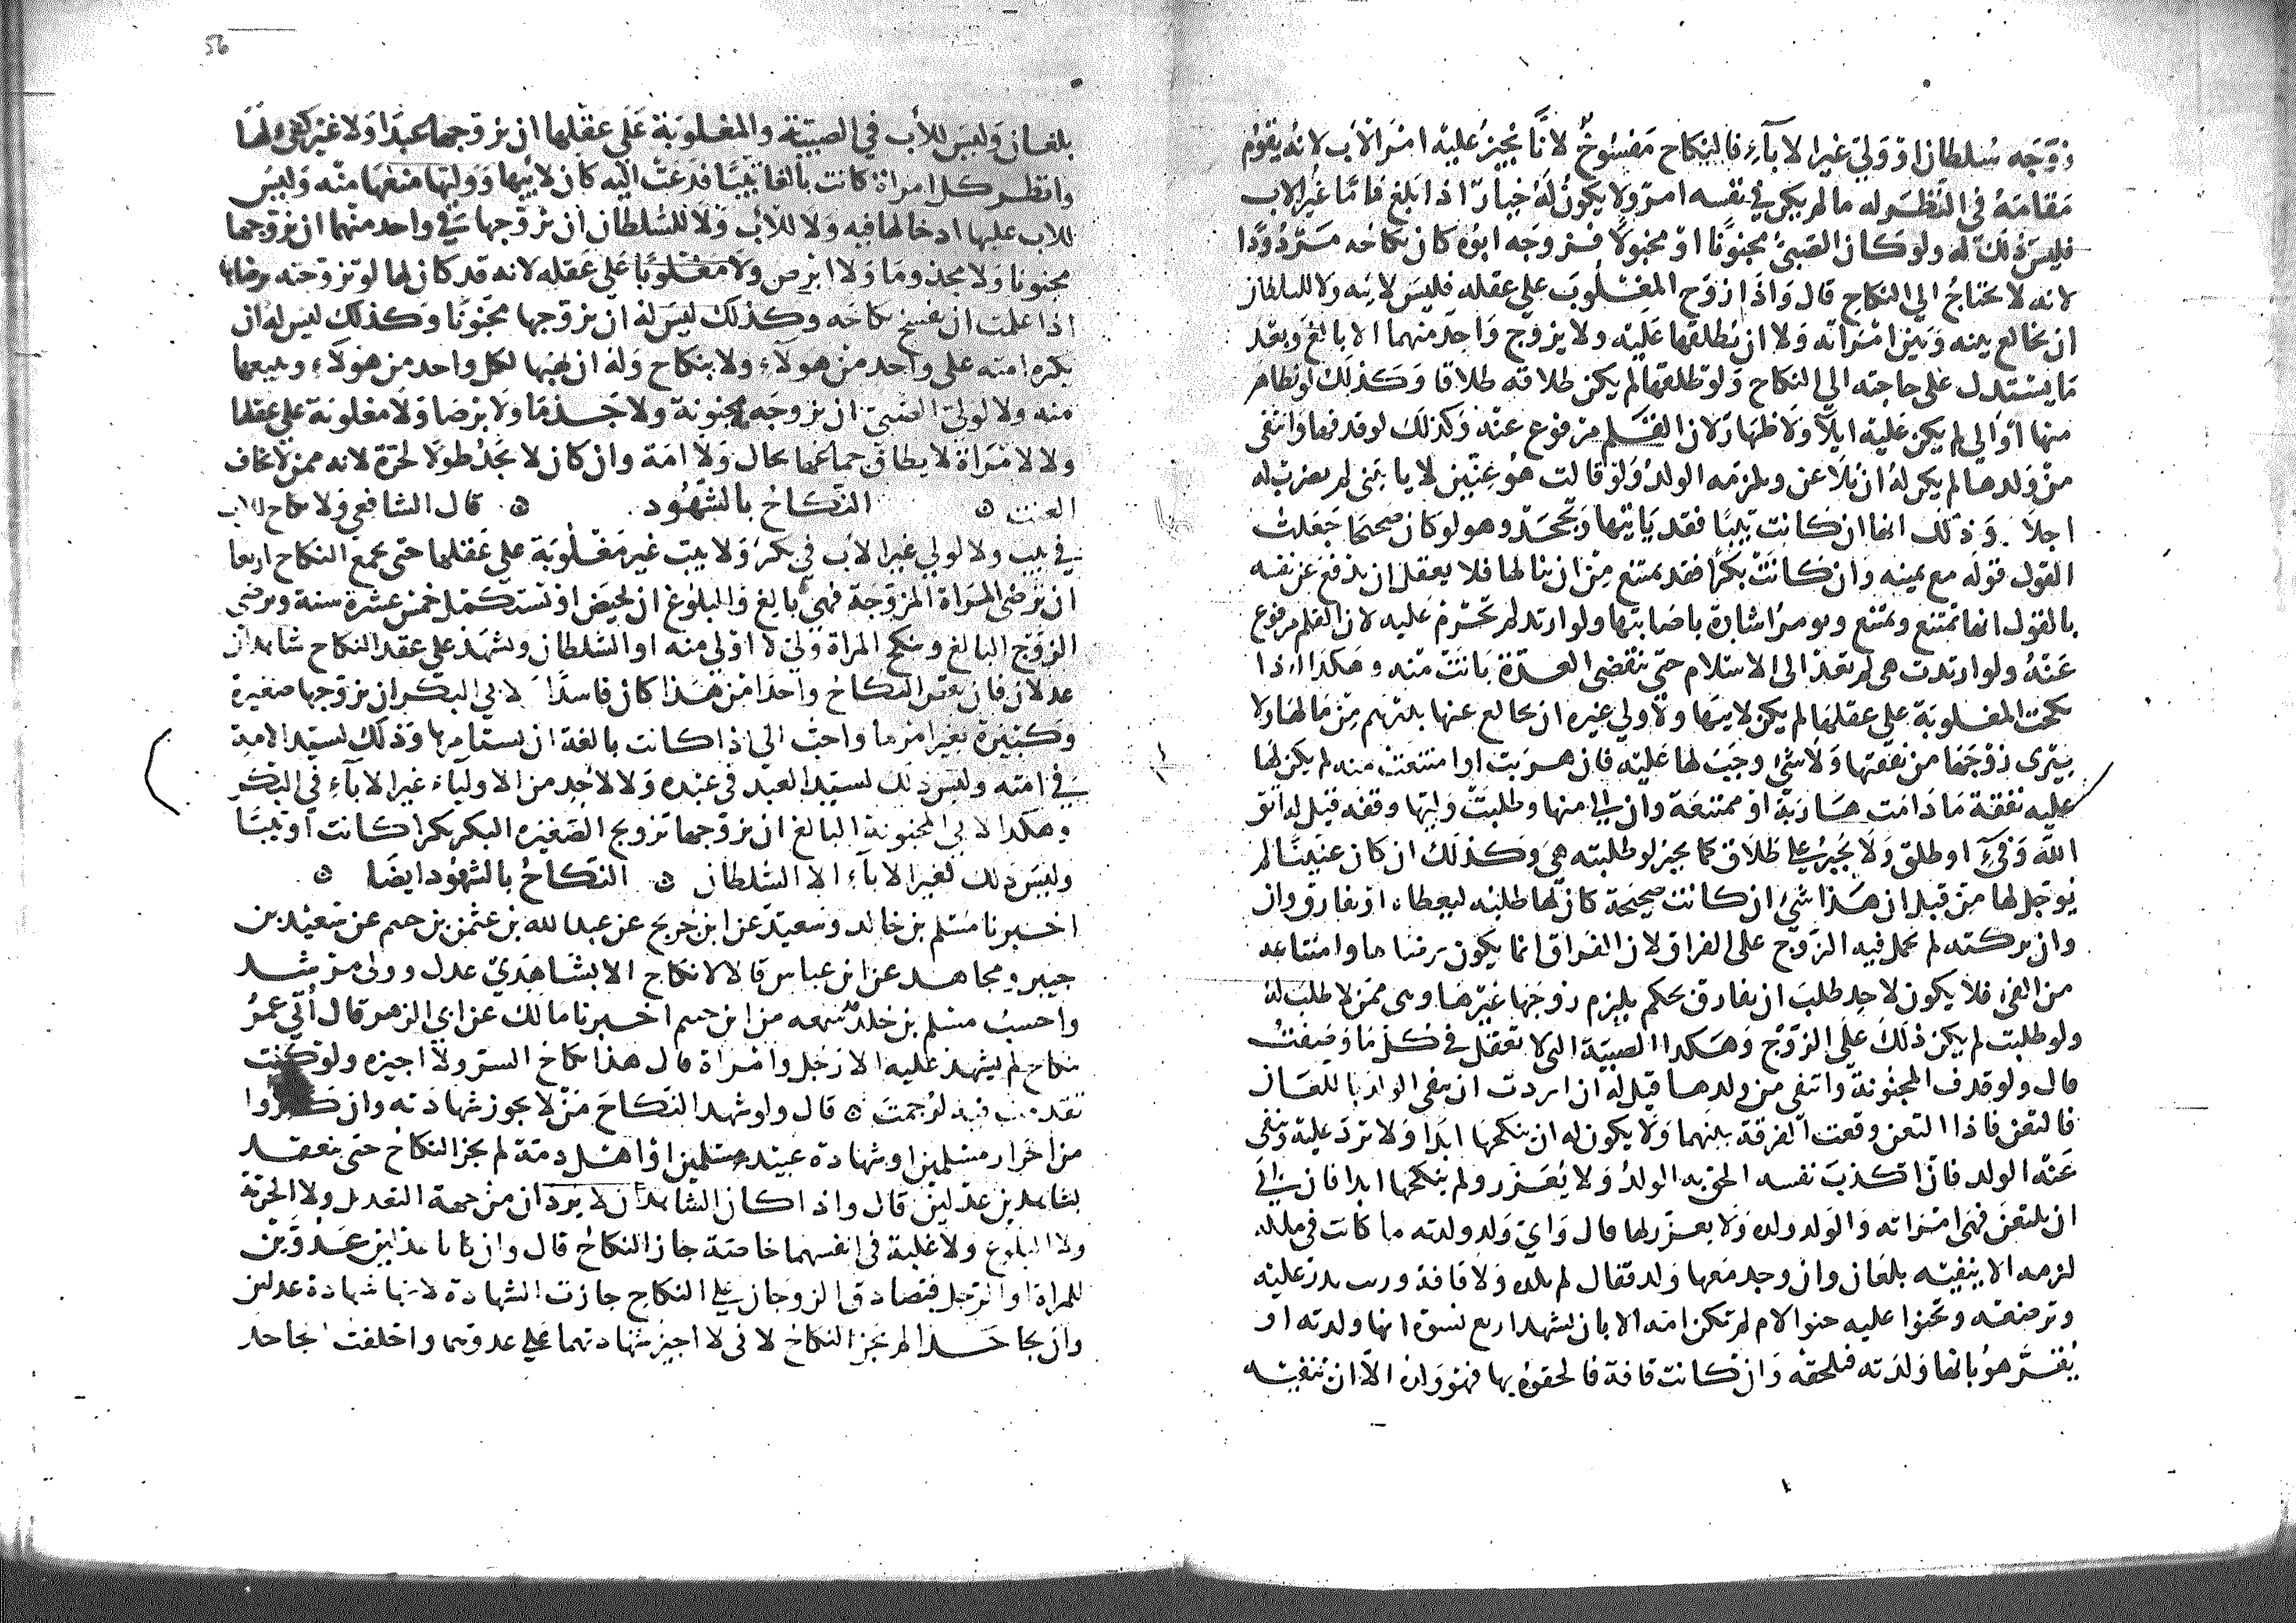 زوجه سلطان او ولي غير الاباء فالنكاح مفسوخ لانا نجيز عليه امر الاب لانه يقوم
مقامه في النظر له ما لم يكن له في نفسه امر ولا يكون له خيار اذا بلغ فاما غير الاب
فليس ذلك له ولو كان الصبي مجنونا او مخبولا فزوجه ابوه كان نكاحه مردودا
لانه لا يحتاج الي النكاح قال واذا زوج المغلوب علي عقله فليس لابيه ولا للسلطان
ان يخالع بينه وبين امراته ولا ان يطلقها عليه ولا يزوج واحد منهما الا بالغ وبعد
ما يستدل على حاجته الى النكاح ولو طلقها لم يكن طلاقه طلاقا وكذلك لو تظاهر
منها او الى لم يكن عليه ايلاء ولا ظهار لان القلم مرفوع عنه وكذلك لو قذفها وانتفى
من ولدها لم يكن له ان يلاعن ويلزمه الولد ولو قالت هو عنين لا ياتيني لم يضرب له
اجلا وذلك انها ان كانت ثيبا فقد ياتيها وتجحد وهو لو كان صحيحا جعلت
القول قوله مع يمينه وان كانت بكرا فقد يمتنع من ان ينالها فلا يعقل ان يدفع عن نفسه
بالقول انها تمتنع ويمتنع ويومر اشارة باصابتها ولو ارتد لم تحرم عليه لان القلم مرفوع
عنه ولو ارتدت هى لم تعد الى الاسلام حتى تنقضي العدة بانت منه وهكذا اذا
نكحت المغلوبة علي عقلها لم يكن لابيها ولا ولي غيره ان يخالع عنها بدرهم من مالها ولا
يبرى زوجها من نفقتها ولا شي وجب لها عليه فان هربت او امتنعت منه لم يكن لها
عليه نفقة ما دامت هاربة او ممتنعة وان الى منها وطلبت وليها وقفه قيل له اتق
الله وفيء او طلق ولا يجبر علي طلاق كما يجبر لو طلبته هي وكذلك ان كان عنينا لم
يوجل لها من قبل ان هذا شي ان كانت صحيحة كان لها طلبه ليعطاه او يفارق وان
وان تركته لم يحمل فيه الزوج على الفراق لان الفراق انما يكون برضاها وامتناعه
من الفي فلا يكون لاحد طلب ان يفارق بحكم يلزم زوجها غيرها وهى ممن لا طلب له
ولو طلبت لم يكن ذلك علي الزوج وهكذا الصبية التي لا تعقل في كل ما وصفت
قال ولو قذف المجنونة وانتفى من ولدها قيل له ان اردت ان تنفي الولد باللعان
فالتعن فاذا التعن وقعت الفرقة بينهما ولا يكون له ان ينكحها ابدا ولا ترد عليه وينفى
عنه الولد فان اكذب نفسه الحق به الولد ولا يعزر ولم ينكحها ابدا فان ابى
ان يلتعن فهي امراته والولد ولده ولا يعزر لها قال واي ولد ولدته ما كانت في ملكه
لزمه الا ينفيه بلعان وان وجد معها ولد فقال لم تلده ولا قافة وريت تدر عليه
وترضعه وتحنوا عليه حنو الام لم تكن امه الا بان يشهد اربع نسوة انها ولدته او
يقر هو بانها ولدته فيلحقه وان كانت قافة فالحقوه بها فهو ولده الا ان تنفيه
56
بلعان وليس للاب في الصبية والمغلوبة علي عقلها ان يزوجها عبدا ولا غير كفىء لها
وانظر كل امراة كانت بالغا ثيبا فدعت اليه كان لابيها ووليها منعها منه وليس
للاب عليها ادخالها فيه ولا للاب ولا للسلطان ان يزوجها في واحد منهما ان يزوجها
مجنونا ولا مجذوما ولا ابرص ولا مغلوبا علي عقله لانه قد كان لها لو تزوجته برضاها
اذا علمت ان يفسخ نكاحه وكذلك ليس له ان يزوجها مجنونا وكذلك ليس له ان
يكره امته على واحد من هولاء ولا بنكاح وله ان يهبها لكل واحد من هولاء ويبيعها
منه ولا لولي الصبي ان يزوجه مجنونة ولا جذما ولا برصا ولا مغلوبة علي عقلها
ولا لامراة لا يطاق جماعها بحال ولا امة وان كان لا يجد طولا لحرة لانه ممن لا يخاف
العنت ه النكاح بالشهود ه قال الشافعي ولا نكاح للاب
في ثيب ولا لولي غير الاب في بكر ولا ثيب غير مغلوبة علي عقلها حتى يجمع النكاح اربعا
ان ترضى المراة المزوجة فهي بالغ والبلوغ ان تحيض او تستكمل خمس عشرة سنة ويرضي
الزوج البالغ وينكح المراة ولي لا اولي منه او السلطان ويشهد علي عقد النكاح شاهدان
عدلان فان نقص النكاح واحدا من هذا كان فاسدا لابي البكر ان يزوجها صغيرة
وكبيرة بغير امرها واحب الي اذا كانت بالغة ان يستامرها وذلك لسيد الامة
في امته وليس ذلك لسيد العبد في عبده ولا لاحد من الاولياء غير الاباء في البكر
وهكذا لابي المجنونة البالغ ان يزوجها تزويج الصغيره البكر بكرا كانت او ثيبا
وليس ذلك لغير الاباء الا السلطان ه النكاح بالشهود ايضا ه
اخبرنا مسلم بن خالد وسعيد عن ابن جريج عن عبد الله بن عثمن بن خثيم عن سعيد بن
جبير ومجاهد عن ابن عباس قال لا نكاح الا بشاهدي عدل وولى مرشد
واحسب مسلم بن خلد سمعه من ابن خثيم اخبرنا مالك عن ابي الزبير قال أتي عمر
بنكاح لم يشهد عليه الا رجل وامراة قال هذا نكاح السر ولا اجيزه ولو كنت
تقدمت فيه لرجمت ه قال ولو شهد النكاح من لا يجوز شهادته وان كثروا
من احرار مسلمين او شهادة عبيد مسلمين او اهل ذمة لم يجز النكاح حتى ينعقد
بشاهدين عدلين قال واذا كان الشاهدان لا يردان من جهة التعديل ولا الحرية
ولا البلوغ ولا علة في انفسهما خاصة جاز النكاح قال وان كانا عدلين عدوين
للمراة او الرجل فتصادق الزوجان علي النكاح جازت الشهادة لانها شهادة عدلين
وان تجاحدا لم يجز النكاح لاني لا اجيز شهادتهما علي عدويهما واحلفت الجاحد